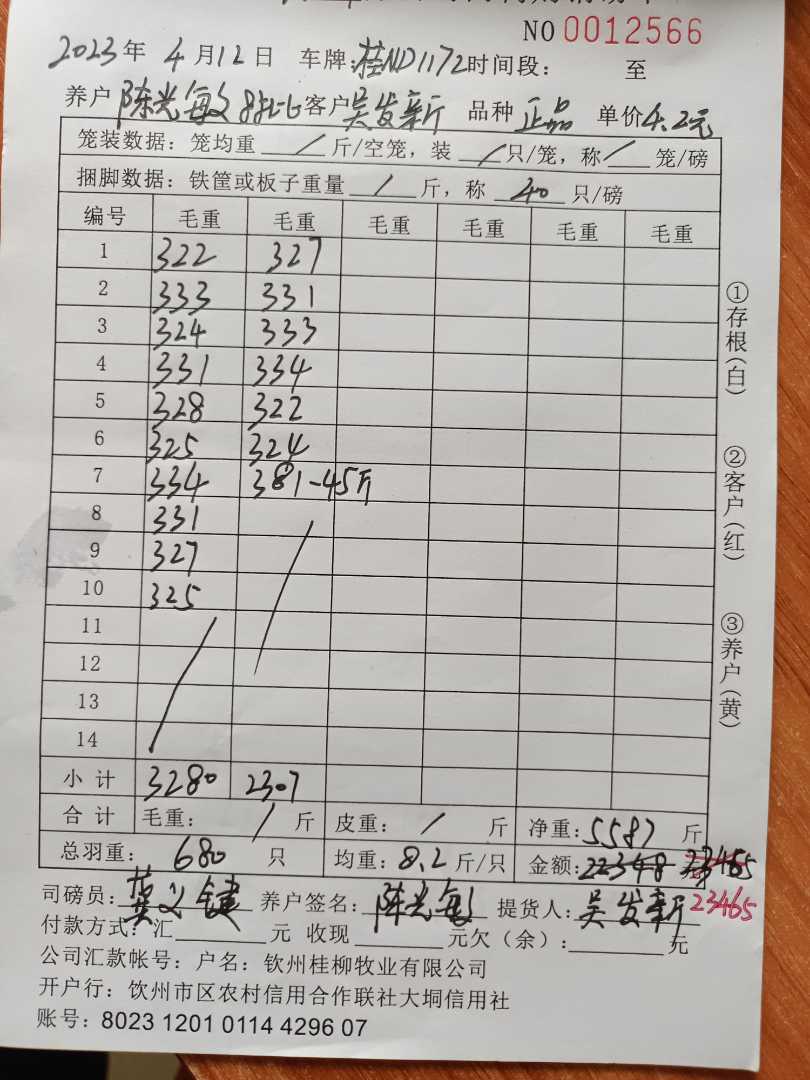 NO 0012566
2023年 4月12日 车牌:桂ND1172时间段: 至
养户 陈光敏 客户吴发新 品种 正品 单价4.2元
笼装数据:笼均重 / 斤/空笼,装 / 只/笼,称 / 笼/磅
捆脚数据:铁筐或板子重量 / 斤,称 40 只/磅
编号 毛重 毛重 毛重 毛重 毛重 毛重
1 322 327
2 333 331
3 324 333
4 331 334
5 328 322
6 325 324
7 334 381-45斤
8 331
9 327
10 325
11
12
13
14
小计 3280 2307
合计 毛重: / 斤 皮重: / 斤 净重:5587 斤
总羽重: 680 只 均重:8.2斤/只 金额:22348 23465
司磅员: 养户签名:陈光敏 提货人:吴发新 23465
付款方式:汇 元 收现 元欠(余): 元
公司汇款帐号:户名:钦州桂柳牧业有限公司
开户行:饮州市区农村信用合作联社大垌信用社
账号:8023 1201 0114 4296 07
①存根(白)
②客户(红)
③养户(黄)